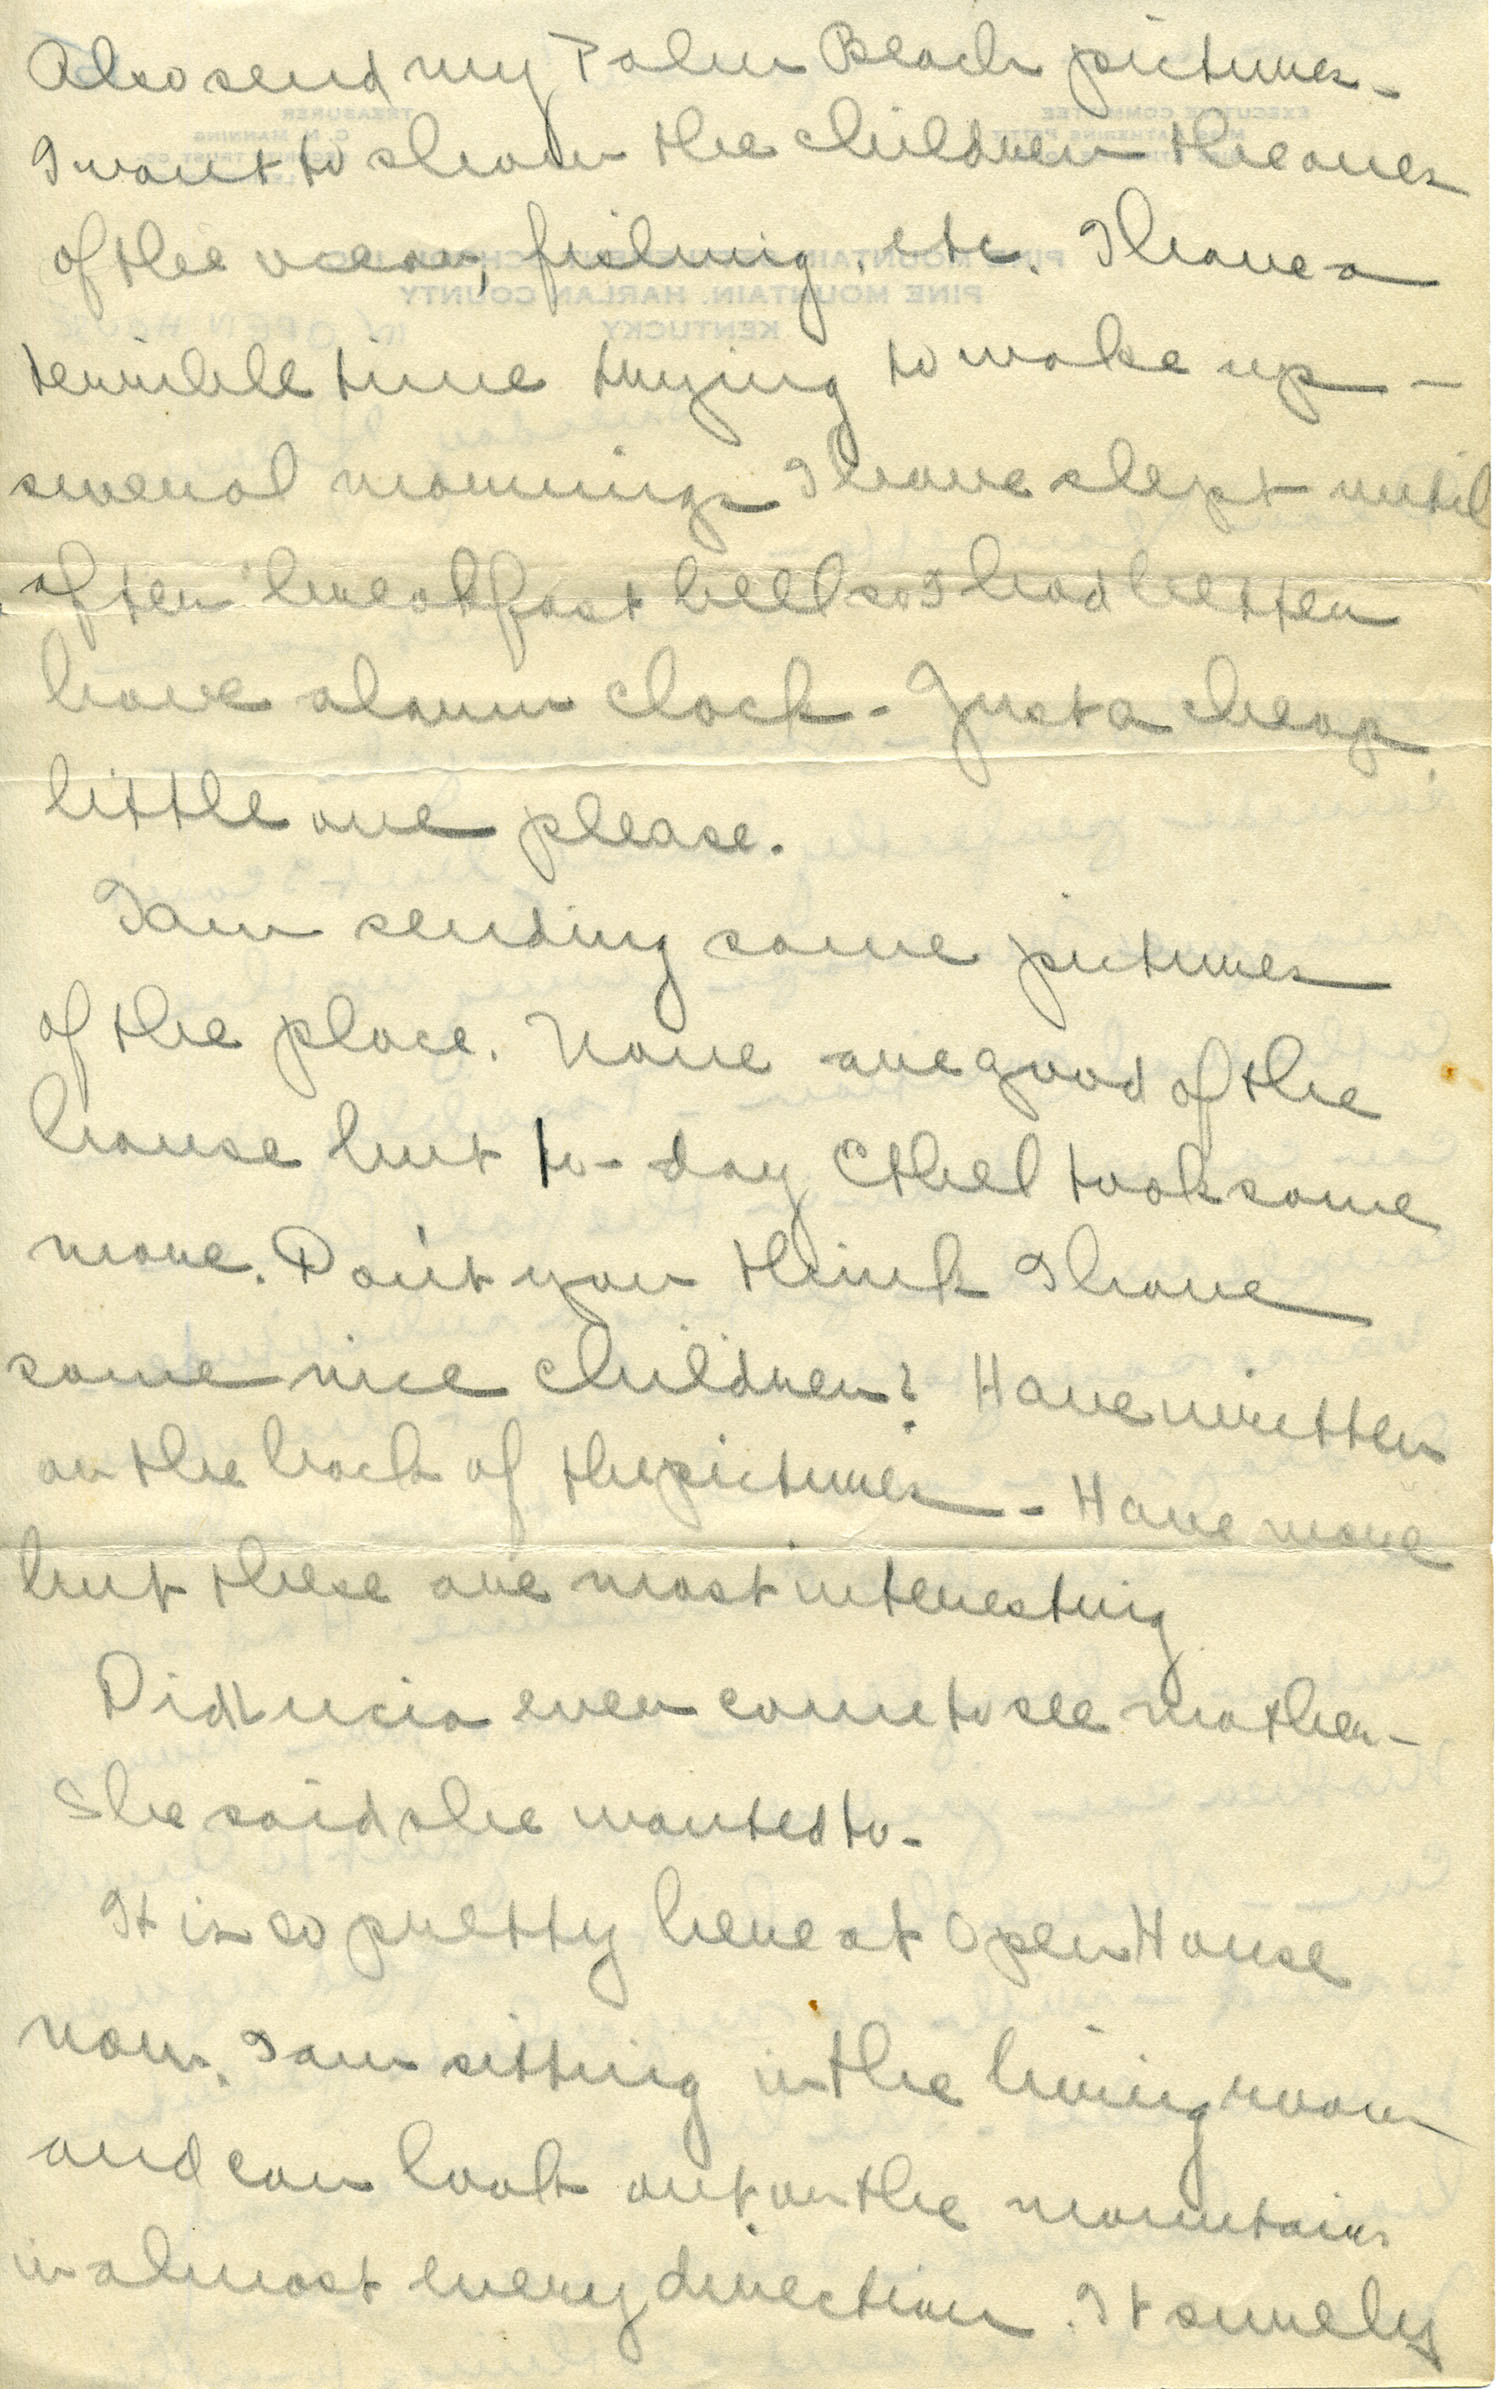 Also send my Palm Beach pictures -
I want to show the children the ones
of the ocean, fishing, etc. I have a
terrible time trying to wake up -
several mornings I have slept until
after breakfast bell so I had better
have alarm clock - Just a cheap
little one please.
I am sending some pictures
of the place. None are good of the
house but to-day Ethel took some
more. Don't you think I have
some nice children? Have written
on the back of the pictures - Have more
but these are most interesting
Did Lucia ever come to see mother -
She said she wanted to -
It is so pretty here at Open House
now. I am sitting in the living room
and can look out on the mountains
in almost every direction. It surely
EXECUTIVE COMMITTEE
TREASURER
C. N. MANNING
PINE MOUNTAIN SETTLEMENT SCHOOL
PINE MOUNTAIN, HARLAN COUNTY
KENTUCKY
OPEN HOUSE